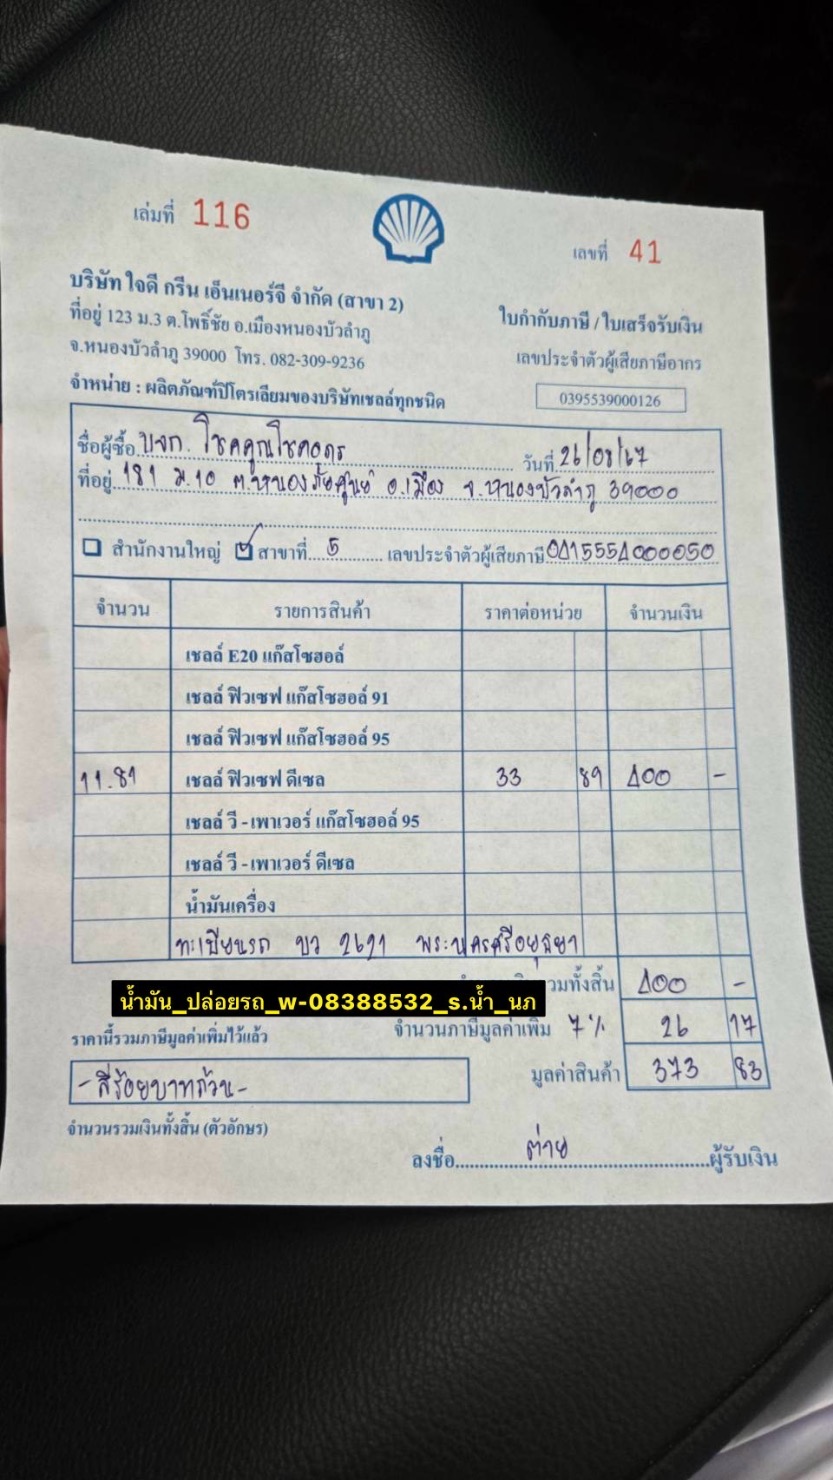 เล่มที่ 116
เลขที่ 41
บริษัท ใจดี กรีน เอ็นเนอร์จี จำกัด (สาขา 2)
ที่อยู่ 123 ม.3 ต.โพธิ์ชัย อ.เมืองหนองบัวลำภู
จ.หนองบัวลำภู 39000 โทร. 082-309-9236
จำหน่าย : ผลิตภัณฑ์ปิโตรเลียมของบริษัทเชลล์ทุกชนิด
ใบกำกับภาษี / ใบเสร็จรับเงิน
เลขประจำตัวผู้เสียภาษีอากร
0395539000126
ชื่อผู้ซื้อ บจก. โชคคูณโชคอุดร วันที่ 26/08/67
ที่อยู่ 181 ม.10 ต.หนองภัยศูนย์ อ.เมือง จ.หนองบัวลำภู 39000
สำนักงานใหญ่ สาขาที่ 5 เลขประจำตัวผู้เสียภาษี 0415554000050
จำนวน รายการสินค้า ราคาต่อหน่วย จำนวนเงิน
เชลล์ E20 แก๊สโซฮอล์
เชลล์ ฟิวเซฟ แก๊สโซฮอล์ 91
เชลล์ ฟิวเซฟ แก๊สโซฮอล์ 95
11.81 เชลล์ ฟิวเซฟ ดีเซล 33 89 400 -
เชลล์ วี - เพาเวอร์ แก๊สโซฮอล์ 95
เชลล์ วี - เพาเวอร์ ดีเซล
น้ำมันเครื่อง
ทะเบียนรถ บว 2621 พระนครศรีอยุธยา
รวมทั้งสิ้น 400 -
น้ำมัน_ปล่อยรถ_w-08388532_s.น้ำ_นภ
ราคานี้รวมภาษีมูลค่าเพิ่มไว้แล้ว
จำนวนภาษีมูลค่าเพิ่ม 7% 26 17
มูลค่าสินค้า 373 83
-สี่ร้อยบาทถ้วน-
จำนวนรวมเงินทั้งสิ้น (ตัวอักษร)
ลงชื่อ ต่าย ผู้รับเงิน